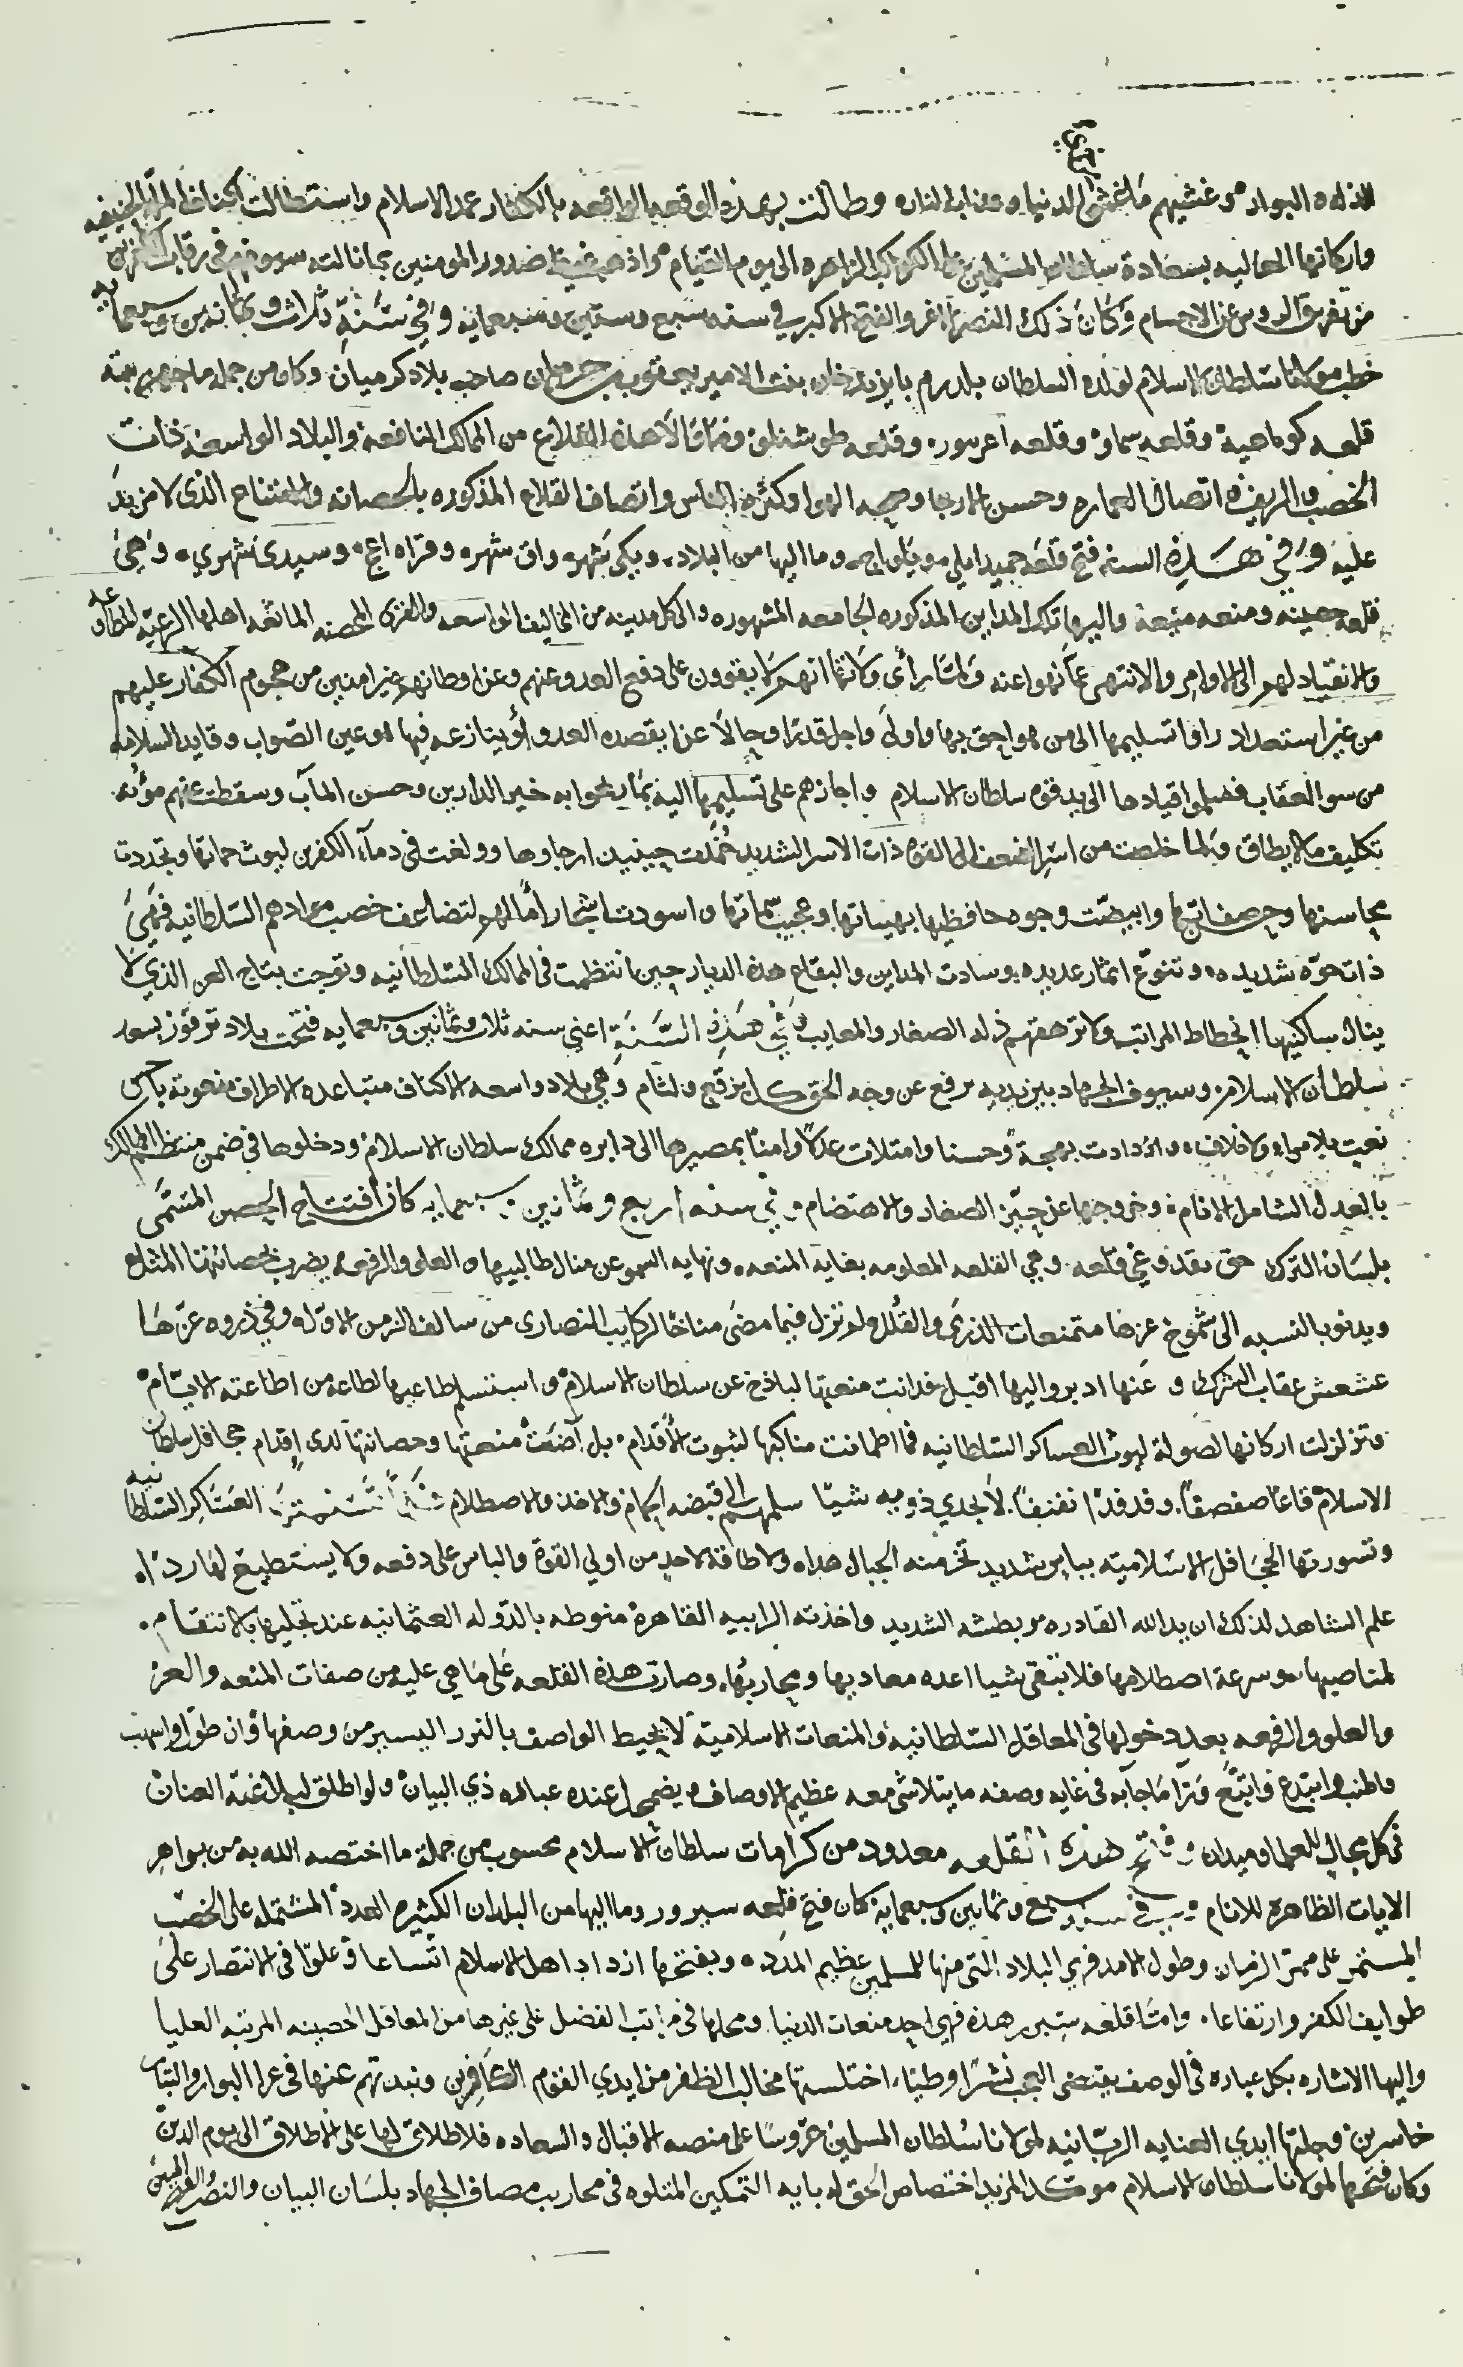 البوار وغشيهم ما غشى الدنيا وعذاب النار وطالت بهذه الوقعه الواقعه بالكفار عمد الاسلام واستطالت الحنيفيه
واركانها العاليه بسعادة سلطان المسلمين الكواكب الزاهره الى يوم القيام واذهب غيظ صدور المومنين بما نالته سيوفهم فى رقاب الكافرين
من تفريق الروس عن الاجسام وكان ذلك النصر الاغر والفتح الاكبر في سنه سبع وستين وسبعمايه وفي سنة ثلاث وثمانين وسبعمايه
خطب مولانا سلطان الاسلام لولده السلطان يلدرم بايزيد خان بنت الامير يعقوب بن صاحب بلاد كرميان وكان من جملة ما
قلعه كوتاهية وقلعه سماو وقلعه وقلعه طوشنلق هذه القلاع من الممالك النافعة والبلاد الواسعة ذات
الخصب والريف اتصال العماره وحسن الارجا الهوا وكثرة الناس واتصاف القلاع المذكوره بالحصانه والامتناع الذى لا مزيد
عليه وفي هذه السنه فتح قلعة حميدايلي ويلواج وما اليها من البلاد ويكى شهر واق شهر وقراه اغج وسيدى شهري وهي
قلعه حصينه ومنعه منيعة واليها تلك المداين المذكوره الجامعه المشهوره والكل مدينه من الواسعه والقرى المحصنه اهلها الرعيه
والانقياد لهم الى الاوامر والانتهى عما نهوا عنه ولما رأى انهم لا يقوون على دفع العدو عنهم وعن اوطانهم غير امنين من هجوم الكفار عليهم
من غير استعداد راوا تسليمها الى من هو احق بها واولى واجل قدرا وحالا عن ان يقصده العدو او ينازعه فيها هو عين الصواب وقايد السلامه
من سو العقاب فسلموا قيادها الى يد قوة سلطان الاسلام واجازهم على تسليمها اليه بما يحوا به خير الدارين وحسن المآب وسقطت عنهم مؤنه
تكليف ما لا يطاق ولما خلصت من اسر الضعف الى القوه ذات الاسر الشديد حينيذ ارجاوها وولغت فى دمآء الكفرين ليوث حماتها وتجددت
محاسنها صفاتها وابيضت وجوه حافظيها بهيباتها وعجيب سماتها واسودت اشجار لتضاعف خصب معاهدهم السلطانيه فهى
ذات حوه شديده وتنوع اثمار عديده وسادت المداين والبقاع هذه الديار حين انتظمت فى الممالك السلطانيه وتوجت بتاج العز الذي لا
ينال ساكنيها انحطاط المراتب ولا ترهقهم ذله الصغار والمعايب وفي هذه السنة اعني سنه ثلاث وثمانين وسبعمايه فتحت بلاد بسعد
سلطان الاسلام وسيوف الجهاد بين يديه ترفع عن وجه الحق كل برقع ولثام وهي بلاد واسعه الاكناف متباعده الاطراف منعوتة باحسن
نعت بلا مراء ولا خلاف وازدادت بهجة وحسنا وامتلات عدلا وامنا بمصيرها الى دايره ممالك سلطان الاسلام ودخولها فى ضمن منتظم الممالك
بالعدل الشامل للانام وخروجها عن حيز الصغار والاهتضام وفي سنه اربع وثمانين وسبعمايه كان افتتاح الحصن المسمى
بلسان الترك قلعه وهي القلعه المعلومه بغاية المنعه ونهايه السمو عن منال طالبيها العلو والرفعه يضرب بحصانتها المثل
ويدنو بالنسبه الى شموخ عزها متمنعات الذرى والقلل ولم تزل فيما مضى مناخا لركايب النصارى من سالف الزمن الاول وفي ذروه عزها
عشعش عقاب الشرك وعنها ادبر واليها اقبل فدانت منعتها لباذخ عز سلطان الاسلام واستسلم لطاعة من اطاعته الايام
وتزلزلت اركانها لصولة ليوث العساكر السلطانيه فما اطمانت مناكبها لثبوت الاقدام بل اضحت منعتها وحصانتها لدى اقدام جحافل سلطان
الاسلام قاعا صفصفا وفدفدا نفنفا لا يجدي ذويه شيا سلمهم الى قبضه الحمام والاخذ والاصطلام العساكر السلطانيه
وتسورتها الجحافل الاسلاميه بباس شديد تخر منه الجبال هدا ولا طاقة لاحد من اولي القوة والباس على دفعه ولا يستطيع لها ردا
علم الشاهد لذلك ان يد الله القادره وبطشه الشديد واخذته الرابيه القاهرة منوطه بالدوله العثمانيه عند تجليها بالانتقام
لمناصبيها وسرعة اصطلامها فلا تبقى شيا اعده معاديها ومحاربها وصارت هذه القلعه على ما هي عليه من صفات المنعه والعز
والعلو والرفعه بعد دخولها فى المعاقل السلطانيه والمنعات الاسلامية لا يحيط الواصف بالنزر اليسير من وصفها وان طول واسهب
واطنب وابتدع ما جآ به فى غايه وصفه ما يتلاشى معه عظيم الاوصاف ويضمحل عنده عبارة ذي البيان ولو اطلق لبلاغته العنان
فى كل مجال للعلما وميدان وفتح هذه القلعه معدود من كرامات سلطان الاسلام محسوب من جملة ما اختصه الله به من بواهر
الايات الظاهرة للانام وفي سنه سبع وثمانين وسبعماية كان فتح قلعه سيروز وما اليها من البلدان الكثيره العدد المشتمله على الخصب
المستمر على ممر الزمان وطول الامد فهي البلاد التى منها للمسلمين عظيم المدد وبفتحها ازداد اهل الاسلام اتساعا وعلوا فى الانتصار على
طوايف الكفر وارتفاعا واما قلعه سيروز هذه فهي احد منعات الدنيا ومحلها فى مراتب الفضل على غيرها من المعاقل الحصينه المرتبه العليا
واليها الاشاره بكل عباره فى الوصف يقتضى العجب نشرا وطيا اختلستها مخالب الظفر من ايدي القوم الكافرين ونبذتهم عنها فى عرا البوار والتباب
خاسرين وجلتها ايدي العنايه الربانيه لمولانا سلطان المسلمين عروسا على منصه الاقبال والسعاده فلا طلاق لها على الاطلاق الى يوم الدين
وكان فتحها لمولانا سلطان الاسلام لمزيد اختصاص الحق له بايه التمكين المتلوه فى محاريب مصاف الجهاد بلسان البيان والنصر العزيز المبين